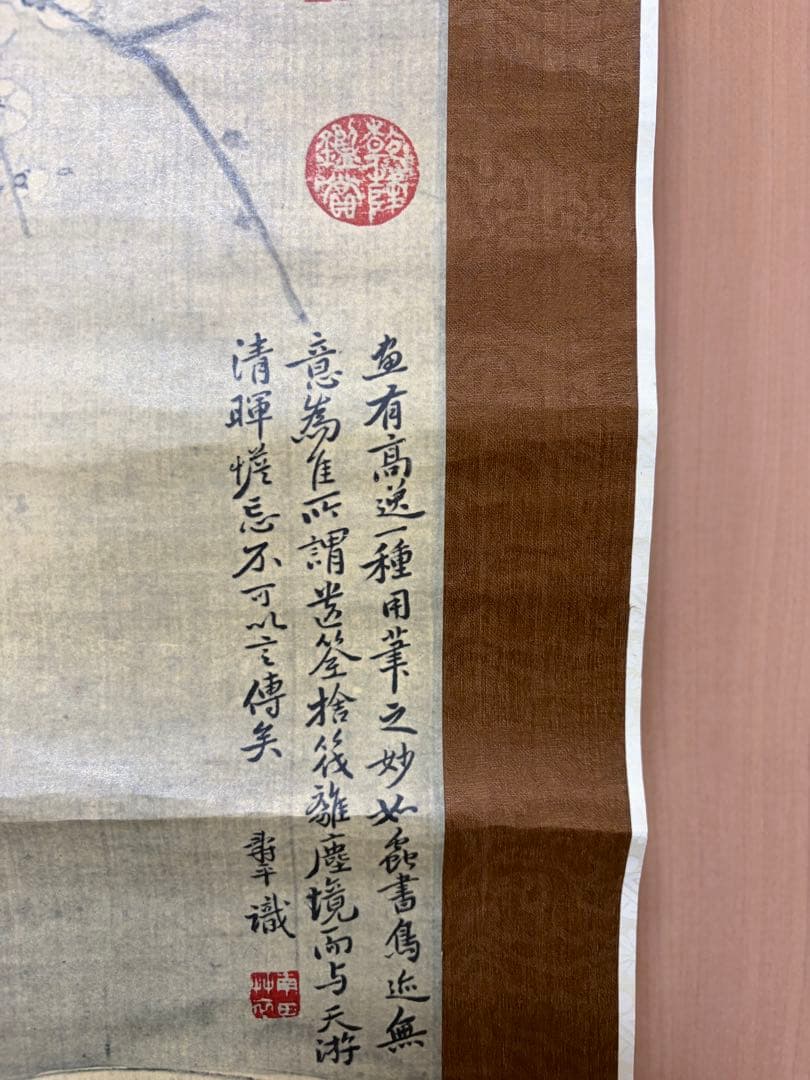 画有高逸一種用筆之妙如蟲書鳥迹無
意為佳所謂遺筌捨筏離塵境而与天游
清暉忘不可以言傳矣
壽平識
乾隆鑑賞
南田艸衣